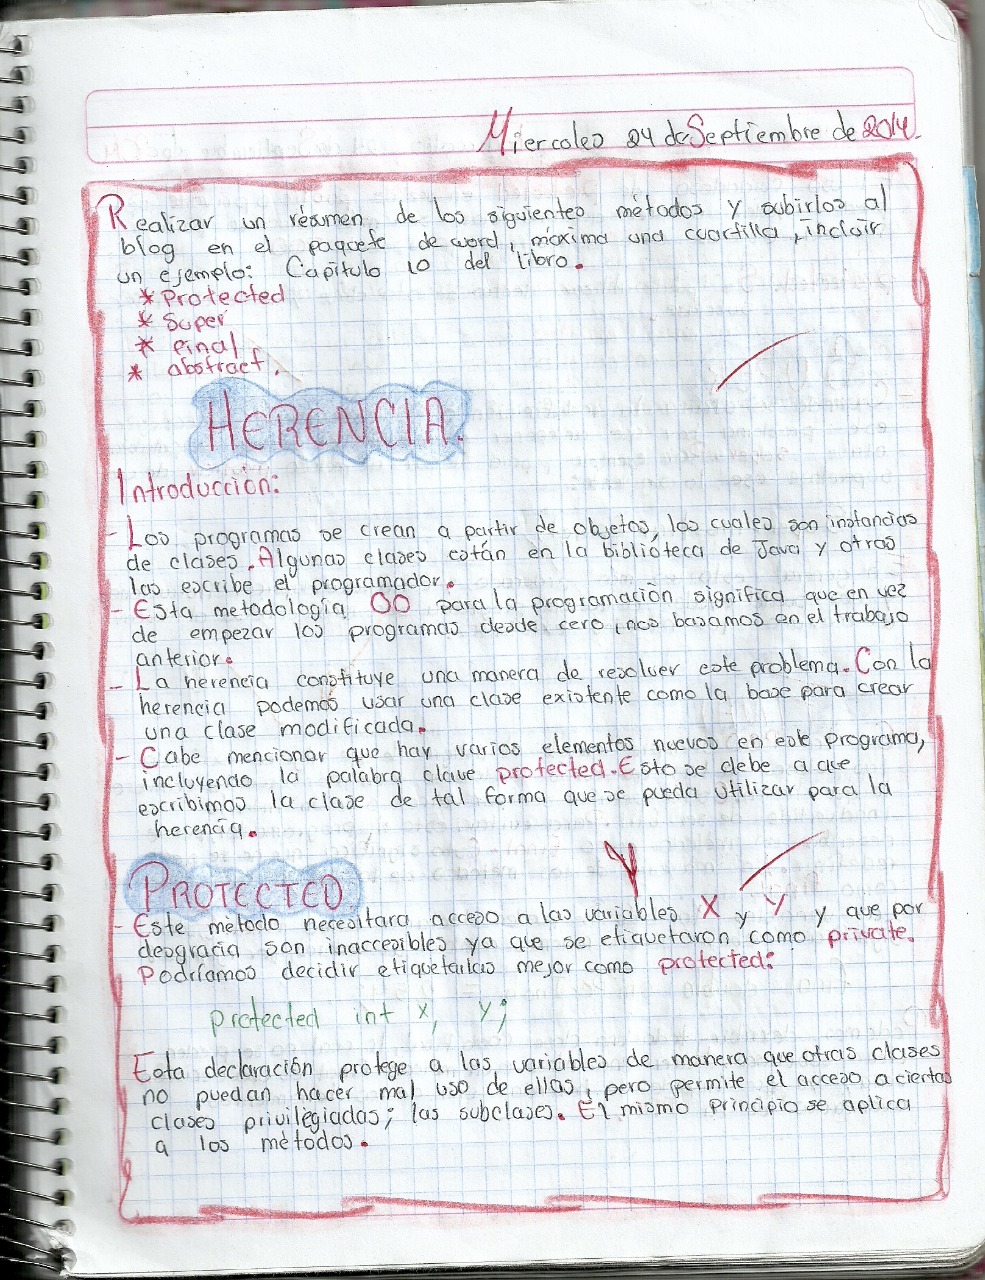 Miercoles 24 de Septiembre de 2014.
Realizar un résumen de los siguientes métodos y subirlos al
blog en el paquete de word, máximo una cuartilla, incluir
un ejemplo: Capítulo 10 del libro.
* Protected
* Super
* final
* abstract.
HERENCIA.
Introducción:
- Los programas se crean a partir de objetos, los cuales son instancias
de clases. Algunas clases están en la biblioteca de Java y otras
las escribe el programador.
- Esta metodología OO para la programación significa que en vez
de empezar los programas desde cero, nos basamos en el trabajo
anterior.
- La herencia constituye una manera de resolver este problema. Con la
herencia podemos usar una clase existente como la base para crear
una clase modificada.
- Cabe mencionar que hay varios elementos nuevos en este programa,
incluyendo la palabra clave protected. Esto se debe a que
escribimos la clase de tal forma que se pueda utilizar para la
herencia.
PROTECTED
- Este método necesitara acceso a las variables X y Y y que por
desgracia son inaccesibles ya que se etiquetaron como private.
Podríamos decidir etiquetarlas mejor como protected:
protected int x, y;
Esta declaración protege a las variables de manera que otras clases
no puedan hacer mal uso de ellas, pero permite el acceso a ciertas
clases privilegiadas; las subclases. El mismo principio se aplica
a los métodos.